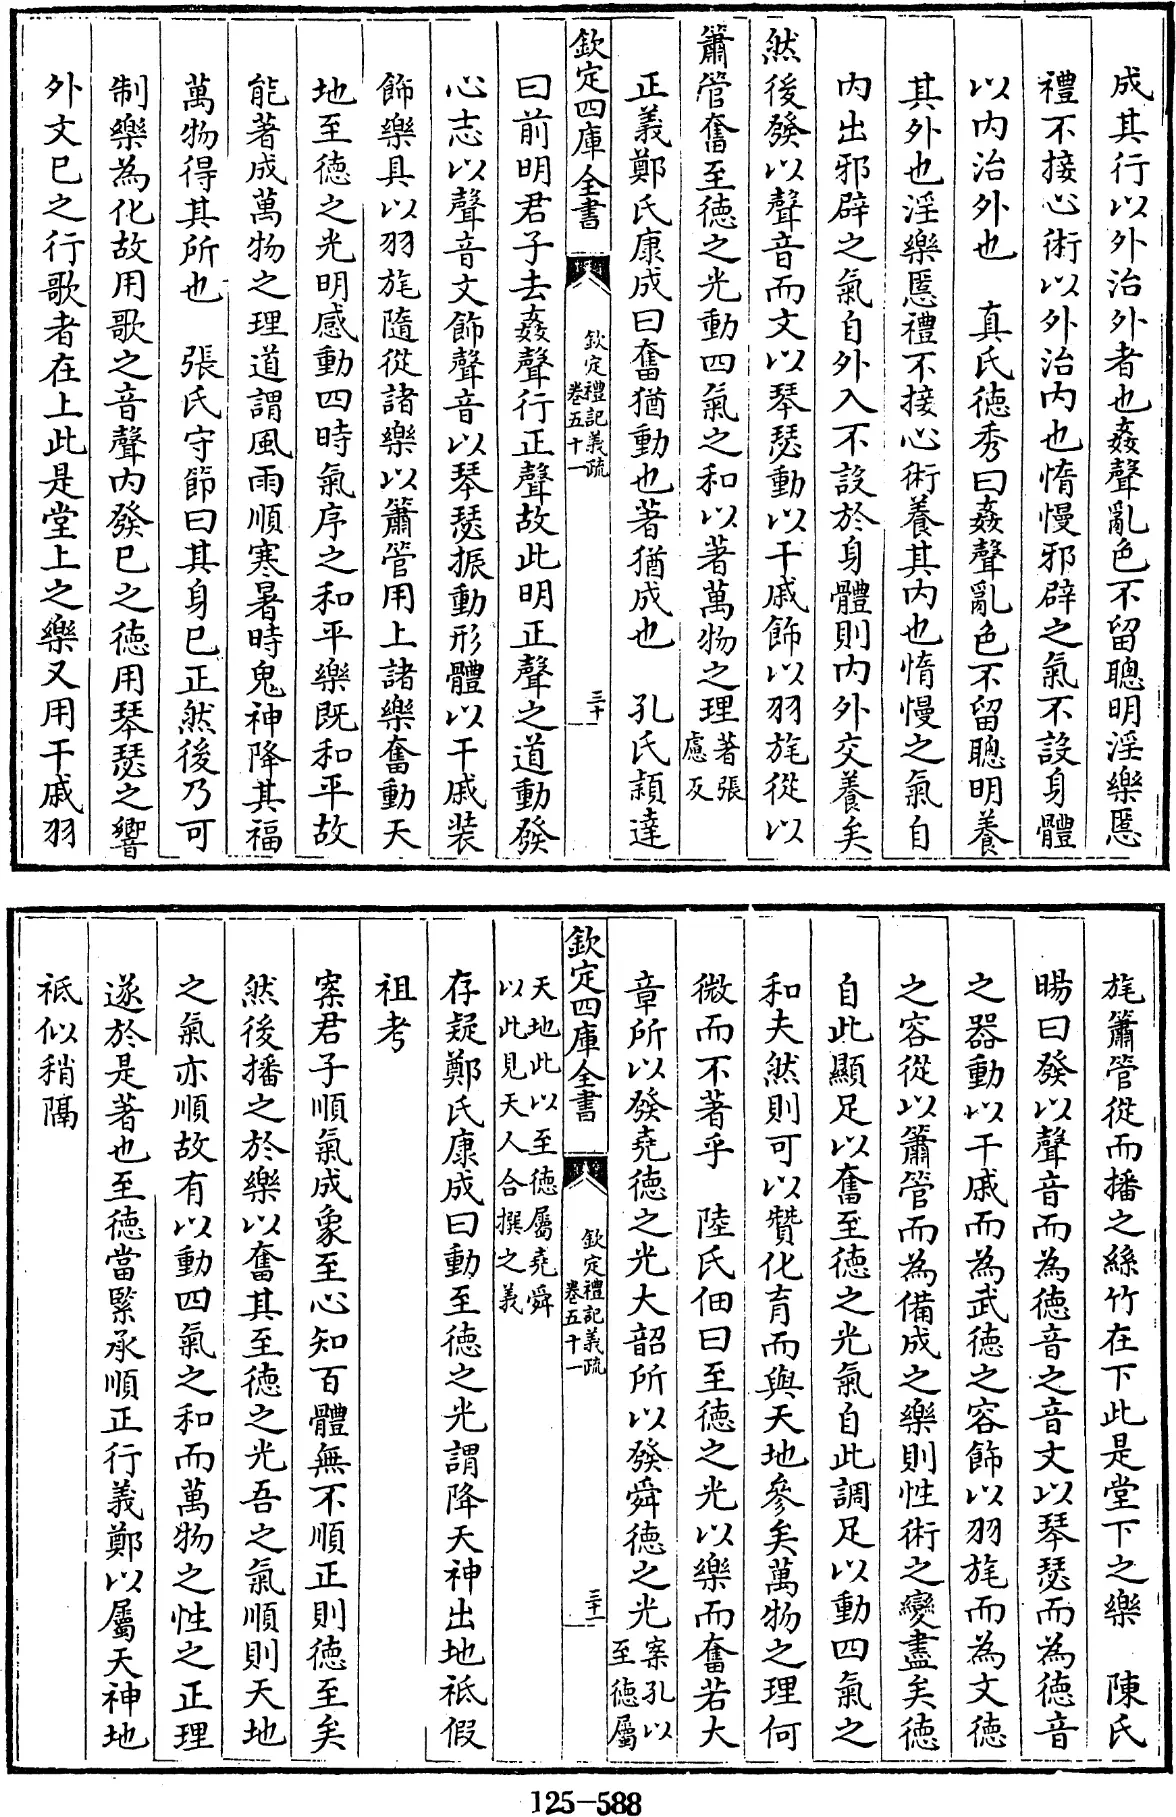 成其行以外治外者也姦聲亂色不留聰明淫樂慝
禮不接心術以外治内也惰慢邪辟之氣不設身體
以内治外也　真氏徳秀曰姦聲亂色不留聰明養
其外也淫樂慝禮不接心術養其内也惰慢之氣自
内出邪辟之氣自外入不設於身體則内外交養矣
然後發以聲音而文以琴瑟動以干戚飾以羽旄從以
簫管奮至徳之光動四氣之和以著萬物之理著張
慮反
正義鄭氏康成曰奮猶動也著猶成也　孔氏穎達
欽定四庫全書
欽定禮記義疏
卷五十一
三十
曰前明君子去姦聲行正聲故此明正聲之道動發
心志以聲音文飾聲音以琴瑟振動形體以干戚装
飾樂具以羽旄隨從諸樂以簫管用上諸樂奮動天
地至徳之光明感動四時氣序之和平樂既和平故
能著成萬物之理道謂風雨順寒暑時鬼神降其福
萬物得其所也　張氏守節曰其身已正然後乃可
制樂為化故用歌之音聲内發已之徳用琴瑟之響
外文已之行歌者在上此是堂上之樂又用干戚羽
旄簫管從而播之絲竹在下此是堂下之樂　陳氏
暘曰發以聲音而為徳音之音文以琴瑟而為徳音
之器動以干戚而為武徳之容飾以羽旄而為文徳
之容從以簫管而為備成之樂則性術之變盡矣徳
自此顯足以奮至徳之光氣自此調足以動四氣之
和夫然則可以贊化育而與天地參矣萬物之理何
微而不著乎　陸氏佃曰至徳之光以樂而奮若大
章所以發堯徳之光大韶所以發舜徳之光案孔以
至徳屬
欽定四庫全書
欽定禮記義疏
卷五十一
三十一
天地此以至徳屬堯舜
以此見天人合撰之義
存疑鄭氏康成曰動至徳之光謂降天神出地祇假
祖考
案君子順氣成象至心知百體無不順正則徳至矣
然後播之於樂以奮其至徳之光吾之氣順則天地
之氣亦順故有以動四氣之和而萬物之性之正理
遂於是著也至徳當緊承順正行義鄭以屬天神地
祇似稍隔
125-588